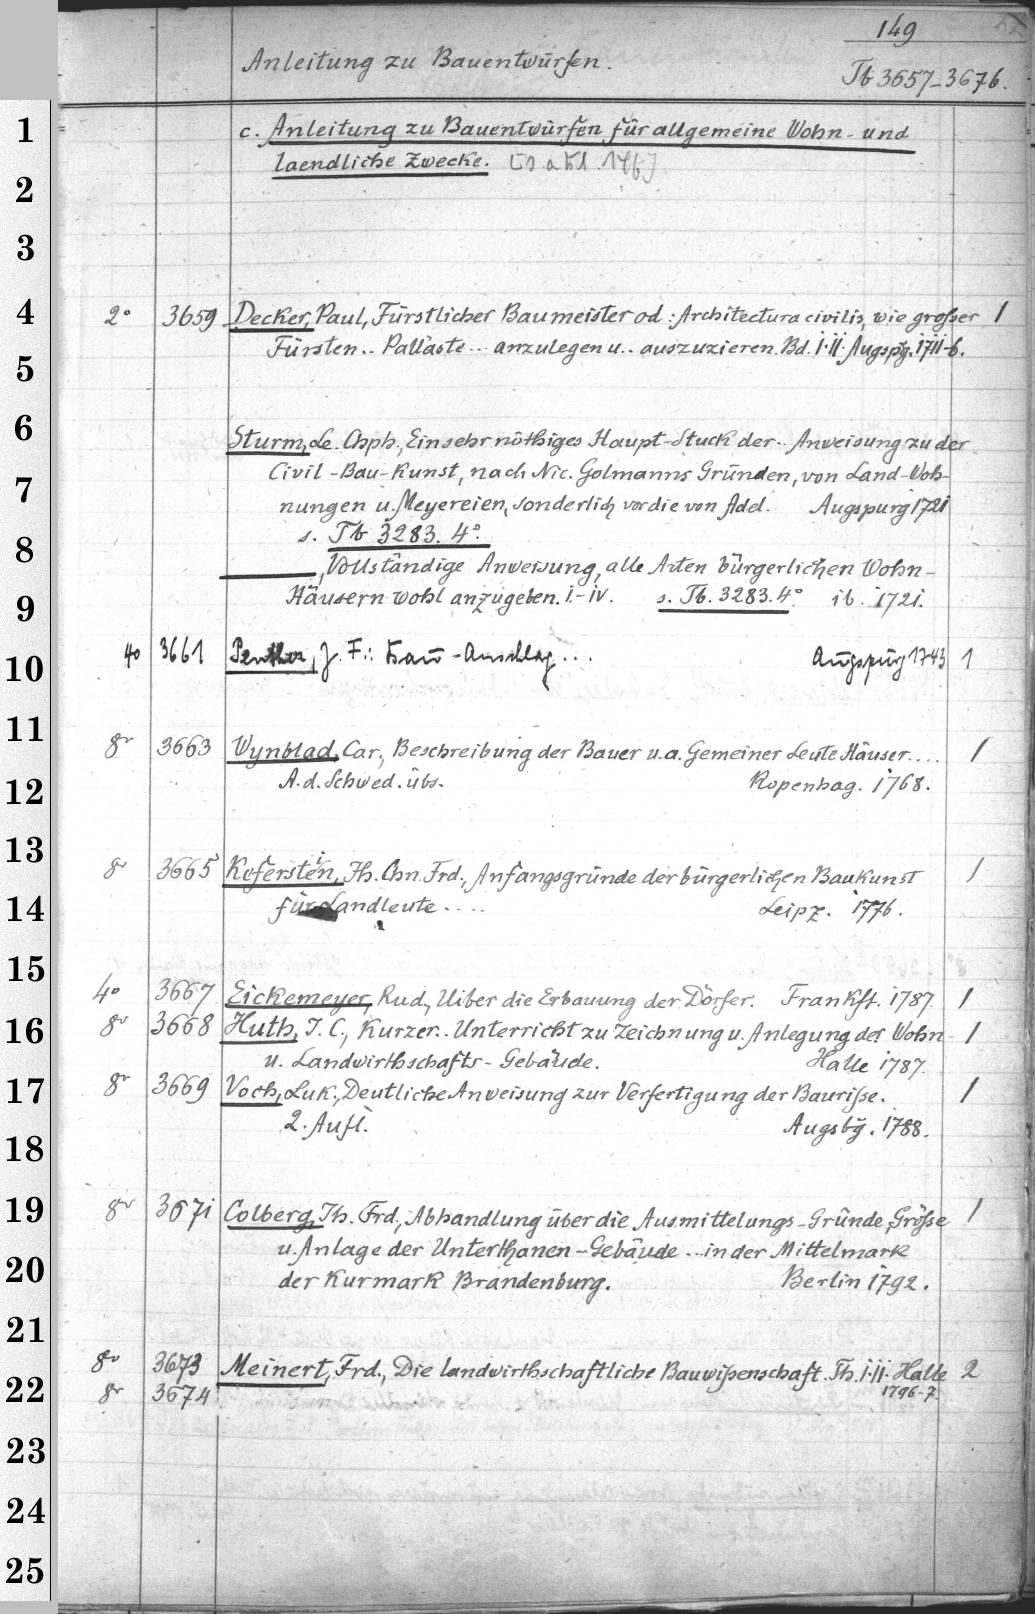 149
Anleitung zu Bauentwürfen.
Tb 3657-3676.
1
c. Anleitung zu Bauentwürfen für allgemeine Wohn- und
laendliche Zwecke.
2
3
4
2° 3659 Decker, Paul, Fürstlicher Baumeister od: Architectura civilis, wie großer 1
Fürsten.. Palläste... anzulegen u.. auszuzieren. Bd. I.II. Augspg. 1711-6.
5
6
Sturm, Le. Chph., Ein sehr nöthiges Haupt-Stuck der.. Anweisung zu der
Civil-Bau-Kunst, nach Nic. Golmanns Gründen, von Land-Woh-
7
nungen u. Meyereien, sonderlich vor die von Adel. Augspurg 1721
s. Tb 3283. 4°.
8
, Vollständige Anweisung, alle Arten bürgerlichen Wohn-
Häusern wohl anzugeben. I.-IV. s. Tb. 3283. 4° ib. 1721.
9
4° 3661 Penther, J. F.: Bau-Anschlag... Augspurg 1743 1
10
11
8° 3663 Wynblad, Car., Beschreibung der Bauer u. a. Gemeiner Leute Häuser.... 1
A. d. Schwed. übs. Kopenhag. 1768.
12
13
8° 3665 Keferstein, Th. Chn. Frd., Anfangsgründe der bürgerlichen Baukunst 1
14
für Landleute.... Leipz. 1776.
15
4° 3667 Eickemeyer, Rud., Uiber die Erbauung der Dörfer. Frankft. 1787. 1
16
8° 3668 Huth, J. C., Kurzer.. Unterricht zu Zeichnung u. Anlegung der Wohn- 1
u. Landwirthschafts-Gebäude. Halle 1787.
17
8° 3669 Voch, Luk., Deutliche Anweisung zur Verfertigung der Baurisse. 1
2. Aufl. Augsbg. 1788.
18
19
8° 3671 Colberg, Th. Frd., Abhandlung über die Ausmittelungs-Gründe, Größe 1
u. Anlage der Unterthanen-Gebäude... in der Mittelmark
20
der Kurmark Brandenburg. Berlin 1792.
21
8° 3673 Meinert, Frd., Die landwirthschaftliche Bauwißenschaft. Th. I.II. Halle 2
22
8° 3674 1796-7.
23
24
25